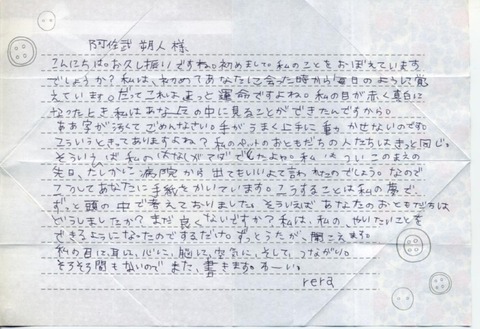 阿佐武 朔人 様
こんにちは。お久し振りですね。初めまして。私のことをおぼえています
でしょうか？私は、初めてあなたに会った時から毎日のように覚
えています。だってこれは、きっと運命ですよね。私の目が赤く真白に
なったとき、私はあなたの中に見ることができたんですから。
ああ字がうまくなくてごめんなさい。手がうまく上手に動かせないのです。
こういうときってありますよね？私のペットのおともだちの人たちはきっと同じ。
そういうば私のはなしがマダでしたよね。私、ついこのまえの
先日、たしかに病院から出てもいいよて言われたのでしょう。なので
こうしてあなたに手紙をかいています。こうすることは私の夢で、
ずっと頭の中で考えておりました。そういえばあなたのおともだちは
どうしましたか？まだ良くないですか？私は、私の、やりたいことを
できるようになったのでするだけ。ずっとうたが、聞こえます。
私の目に、耳に、心に、脳に、空気に、そして、つながり。
そろそろ間もないのでまた、書きます。わーい。
rera